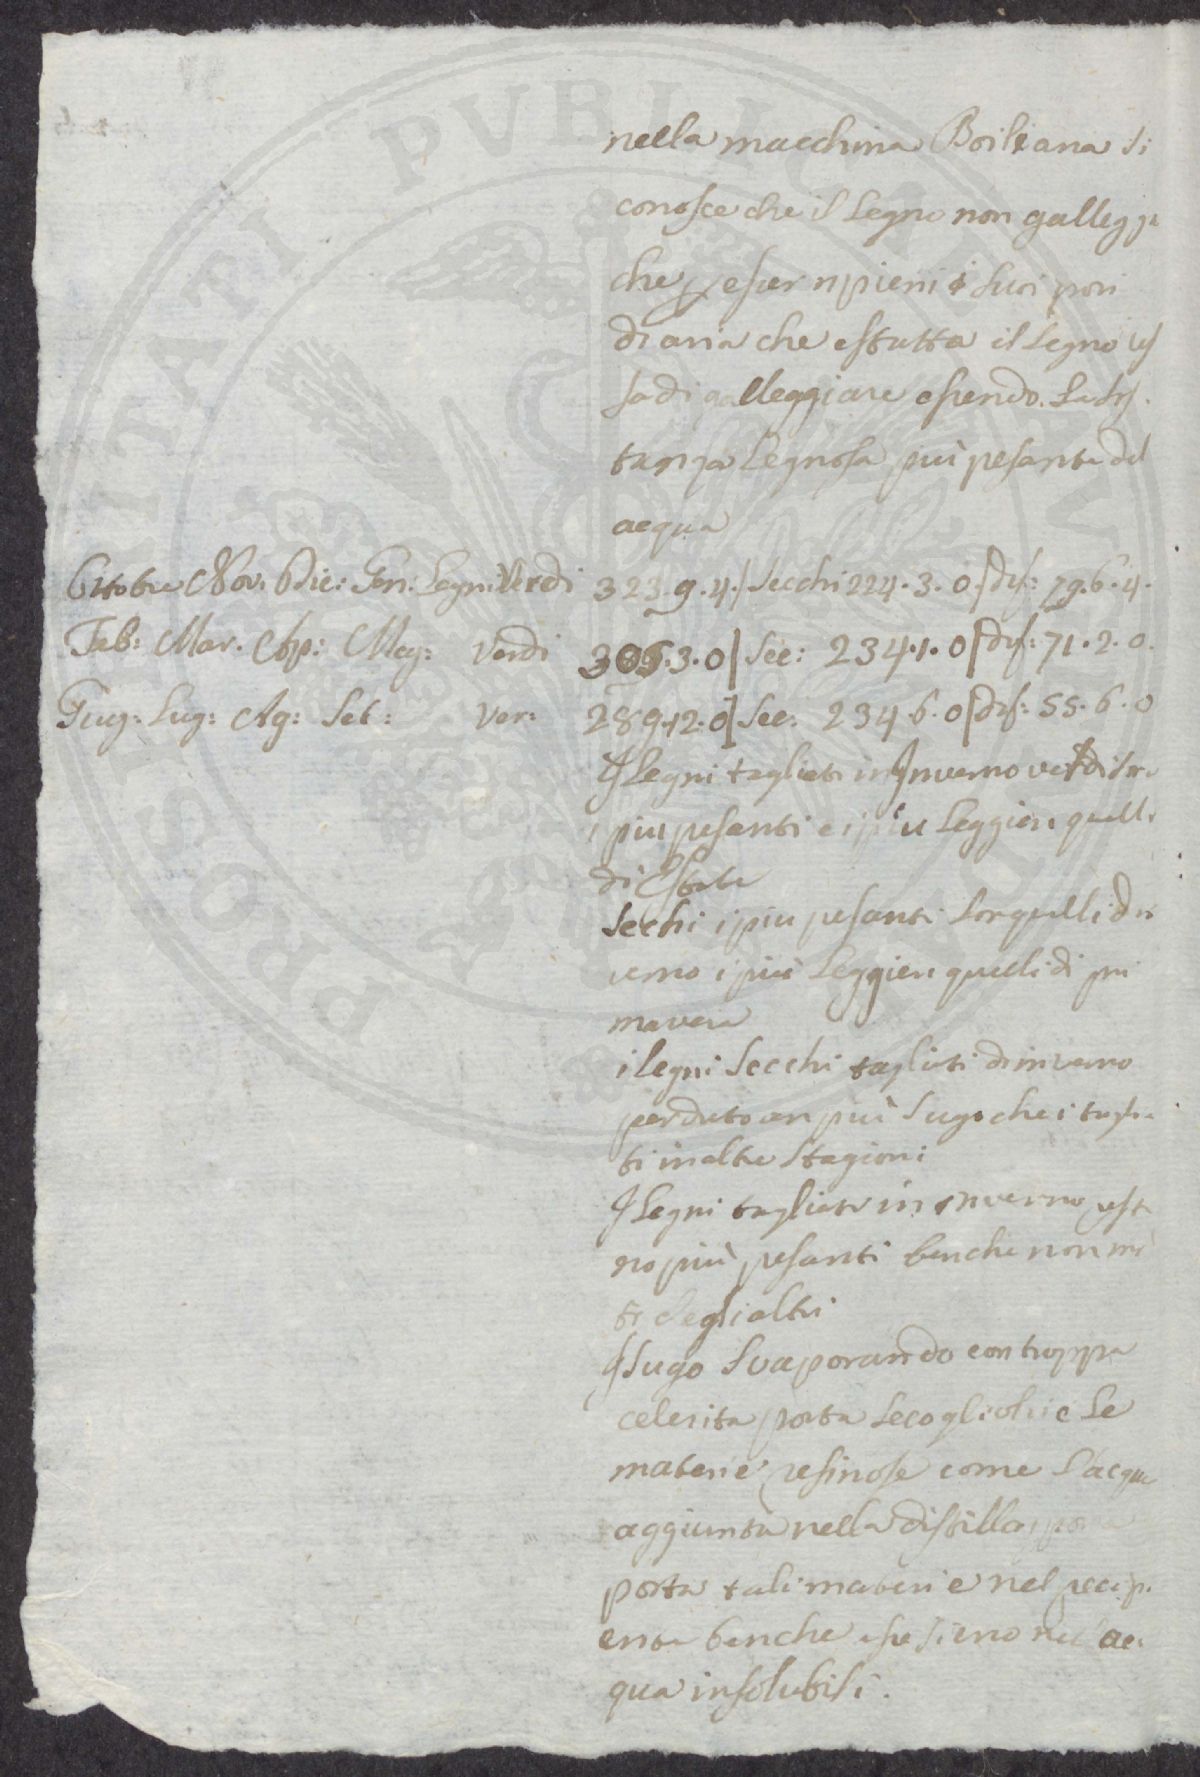 nella macchina Boileana si
conosce che il Legno non gallegg
che p esser ripieni i suoi pori
di aria che estratta il Legno ces
sa di galleggiare essendo La sos.
tanza Legnosa più pesante del
acqua
Ottobre Nov. Xbre: Gen: Legni Verdi 323.9.4.| Secchi 224.3.0.|dif: 79.6.4.
Feb: Mar. Ap: Mag: Verdi 305.3.0| Sec: 234.1.0|dif: 71.2.0.
Giug: Lug: Ag: Set: Ver: 289.12.0| Sec: 234 6.0|dif: 55.6.0
I Legni tagliati in Inverno verdi so.
i piu pesanti e i piu Leggieri quelli
di Estate
Secchi i piu pesanti son quelli d in
verno i più Leggieri quelli di pri
mavera
i legni Secchi tagliati d inverno
perduto an più Sugo che i taglia
ti in altre Stagioni
I Legni tagliati in inverno rest
no più pesanti benche non mi
ti degli altri
Il Sugo Svaporando con troppa
celerità porta Seco gli olii e Le
materie resinose come L'acqua
aggiunta nella distillazione
porta tali materie nel recipi
ente benche esse sieno nel ac.
qua insolubili.
PVBLICAE